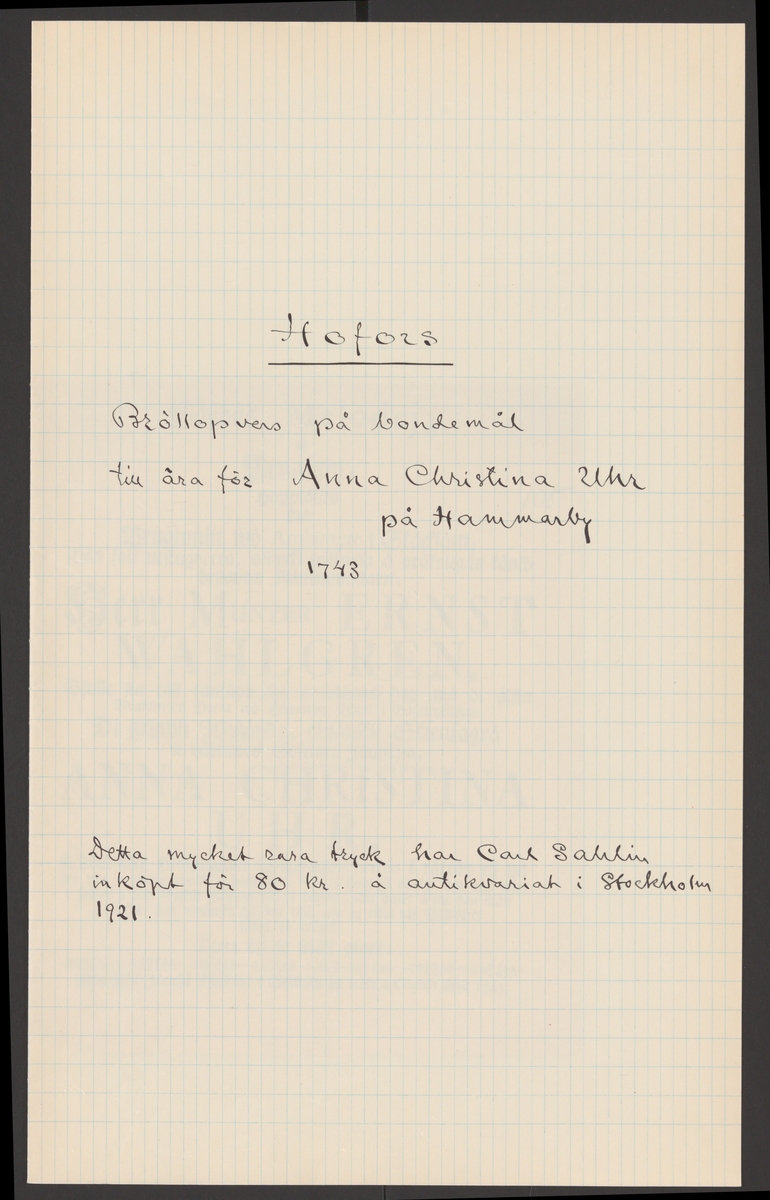 Hofors
Bröllopvers på bondemål
till ära för Anna Christina Uhr
på Hammarby
1743
ERNST
WAHLGREN
ANNA CHRISTINA
Detta mycket rara tryck har Carl Sahlin
inköpt för 80 kr. å antikvariat i Stockholm
1921.